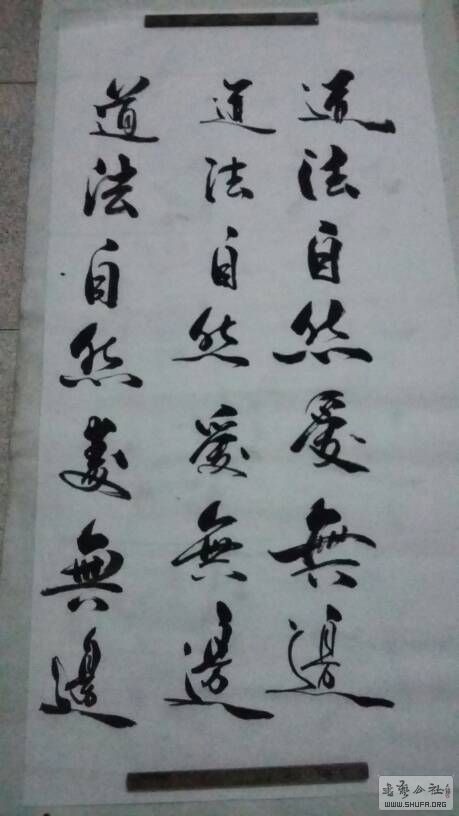 道法自然愛無邊
道法自然愛無邊
道法自然愛無邊
书藝公社
WWW.SHUFA.ORG